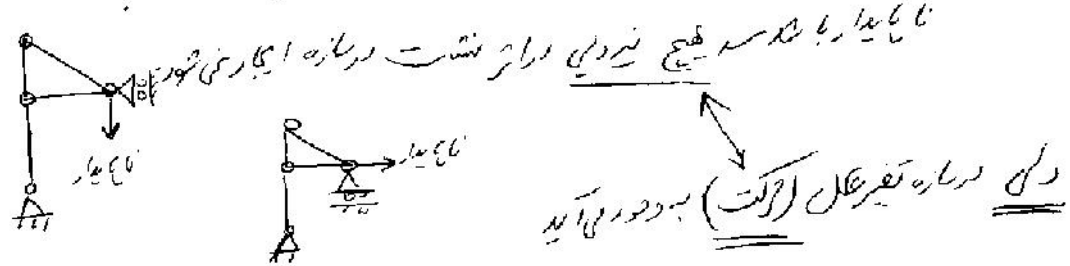 ناپایدار باشد سد هیچ نیرویی در اثر نشست در سازه ایجاد نمی شود
ناپایدار
ناپایدار
ولی در سازه تغییر شکل (حرکت) به وجود می آید